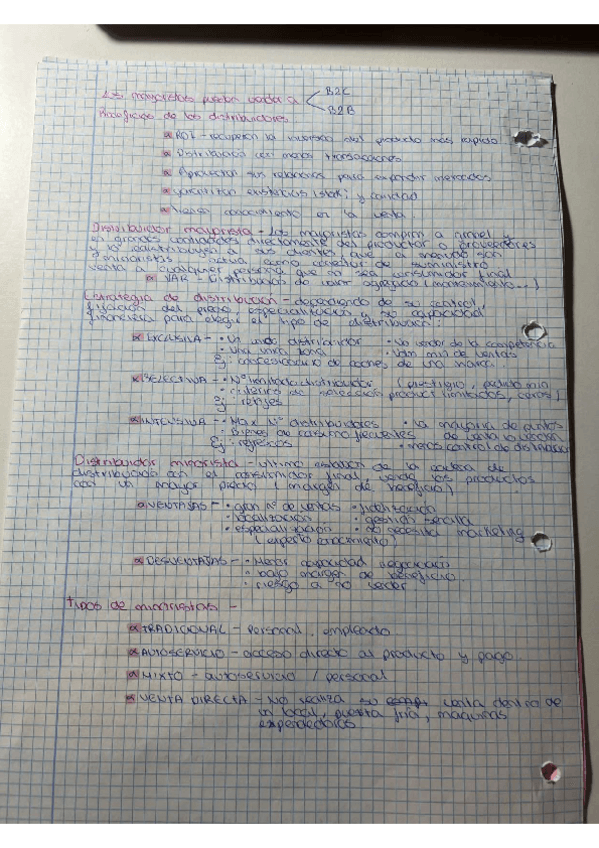 Los mayoristas pueden vender a B2C
B2B
Beneficios de los distribuidores
ROI - recuperan la inversión del producto más rápido
Distribución con menos transacciones
Aprovechar sus relaciones para expandir mercados
garantizan existencias (stock) y calidad
Tienen conocimiento en la venta.
Distribuidor mayorista - Los mayoristas compran a granel y
en grandes cantidades directamente del productor o proveedores
y lo distribuyen a sus clientes que a menudo son
minoristas. Actúa como conector de suministro
venta a cualquier persona que no sea consumidor final
VAR - Distribuidor de valor agregado (mantenimiento...)
Estrategia de distribución - dependiendo de su control,
fijación del precio, especialización y su capacidad
financiera para elegir el tipo de distribución:
EXCLUSIVA - · Un único distribuidor · No vender de la competencia
· Una única zona · Núm min de ventas
Ej: concesionario de coches de una marca.
SELECTIVA - · Nº limitado distribuidor (prestigio, pedido min
· criterios de selección product limitados, caros)
Ej: relojes
INTENSIVA - · Max Nº distribuidores · La mayoría de puntos
· Bienes de consumo frecuentes de venta lo venden
Ej: refrescos · menos control de distribuidor
Distribuidor minorista - último eslabón de la cadena de
distribución con el consumidor final, vende los productos
con un mayor precio (margen de beneficio)
VENTAJAS - · gran Nº de ventas · fidelización
· localización · gestión sencilla
· especialización · no necesita marketing
(experto conocimiento)
DESVENTAJAS - · Menor capacidad negociación
· bajo margen de beneficio
· riesgo a no vender
Tipos de minoristas -
TRADICIONAL - personal, empleado
AUTOSERVICIO - acceso directo al producto y pago
MIXTO - autoservicio / personal
VENTA DIRECTA - No realiza su venta dentro de
un local, puerta fría, máquinas
expendedoras